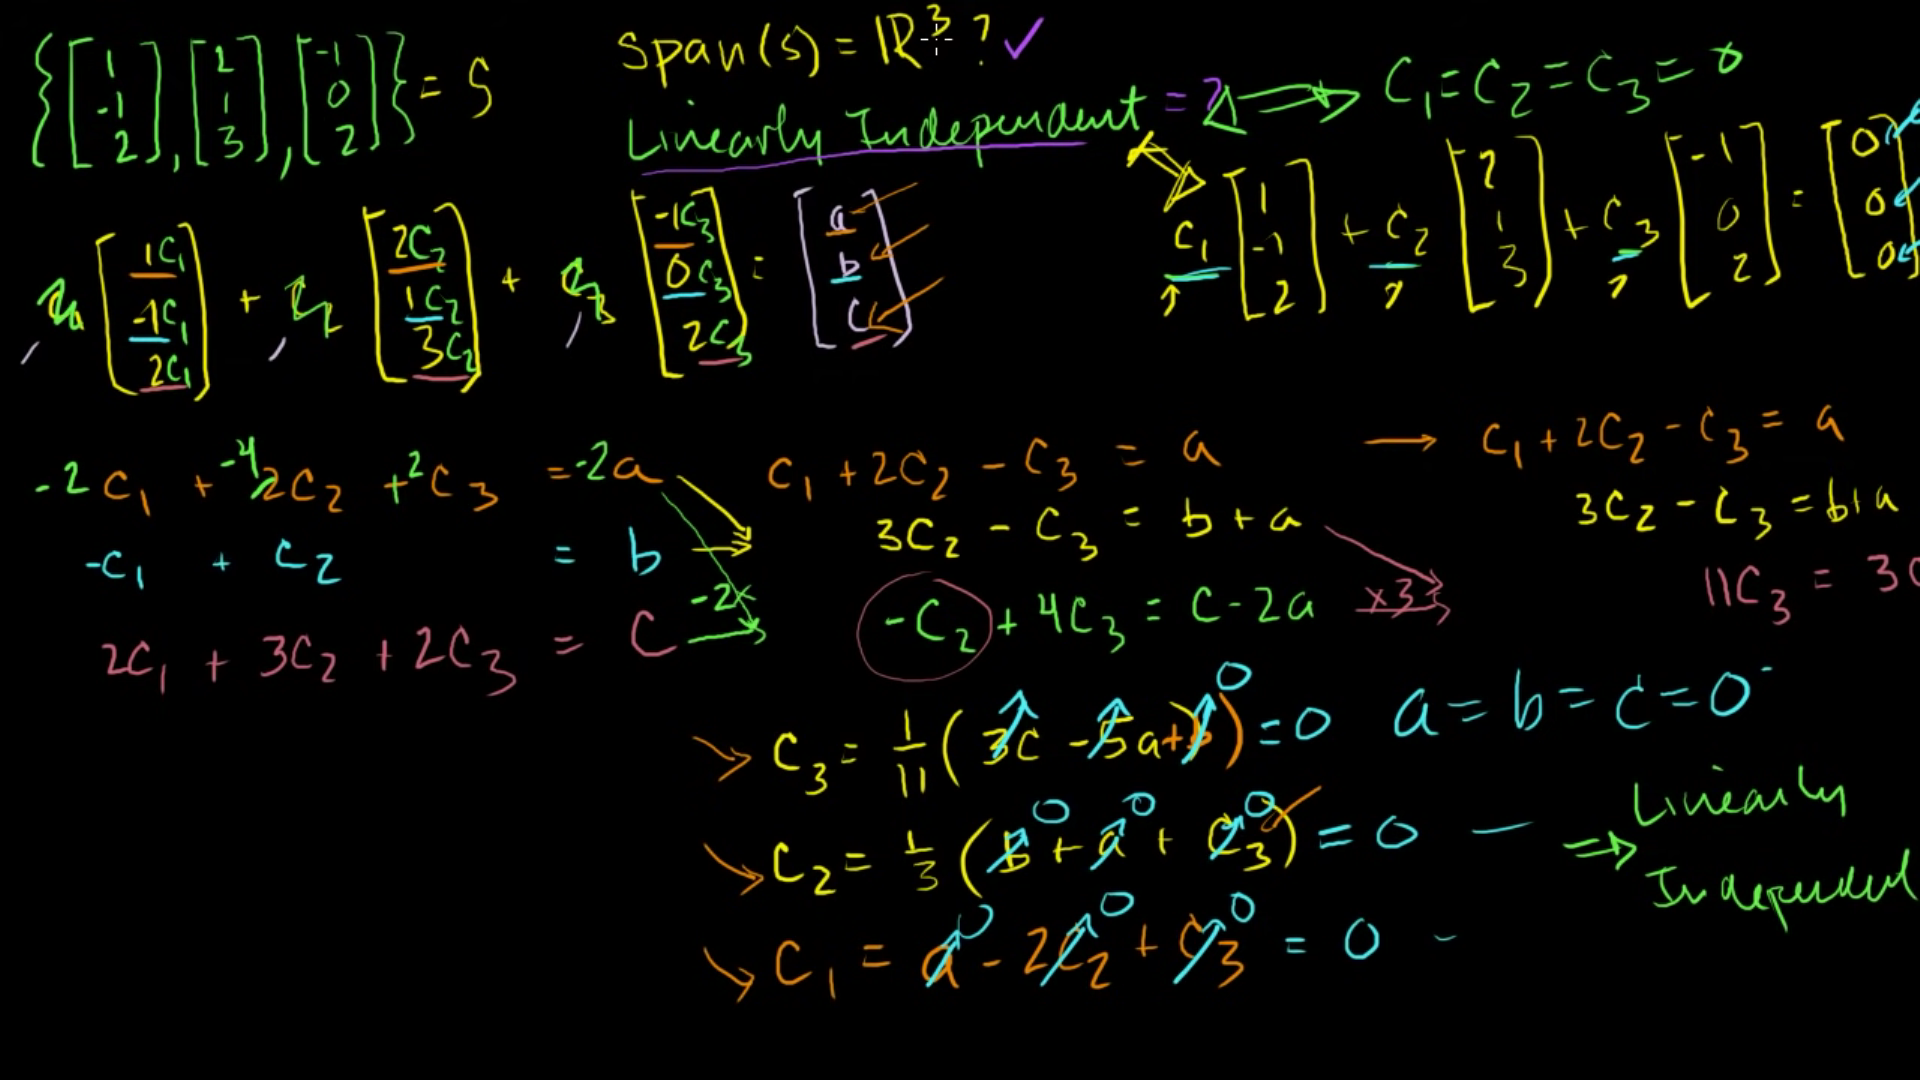 {[1 -1 2], [2 1 3], [-1 0 2]} = S
Span(s) = ℝ³ ? ✓
Linearly Independent = ? ⟺ C₁=C₂=C₃=0
[1C₁ -1C₁ 2C₁] + [2C₂ 1C₂ 3C₂] + [-1C₃ 0C₃ 2C₃] = [a b c]
C₁ [1 -1 2] + C₂ [2 1 3] + C₃ [-1 0 2] = [0 0 0]
-2C₁ + -4 2C₂ +2C₃ = -2a
-C₁ + C₂ = b
2C₁ + 3C₂ + 2C₃ = C
-2x
C₁ + 2C₂ - C₃ = a
3C₂ - C₃ = b + a
-C₂ + 4C₃ = C - 2a
x3
→ C₁ + 2C₂ - C₃ = a
3C₂ - C₃ = b+a
11C₃ = 3C
C₃ = 1/11 (3C - 5a + b) 0 = 0
a = b = c = 0
C₂ = 1/3 (b 0 + a 0 + C₃ 0) = 0
C₁ = a 0 - 2C₂ 0 + C₃ 0 = 0
⇒ Linearly
Independent